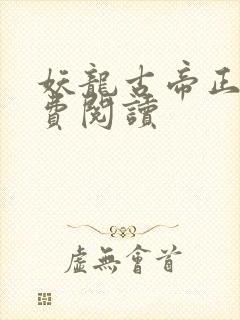 妖龍古帝正
費閱讀
虛無會首